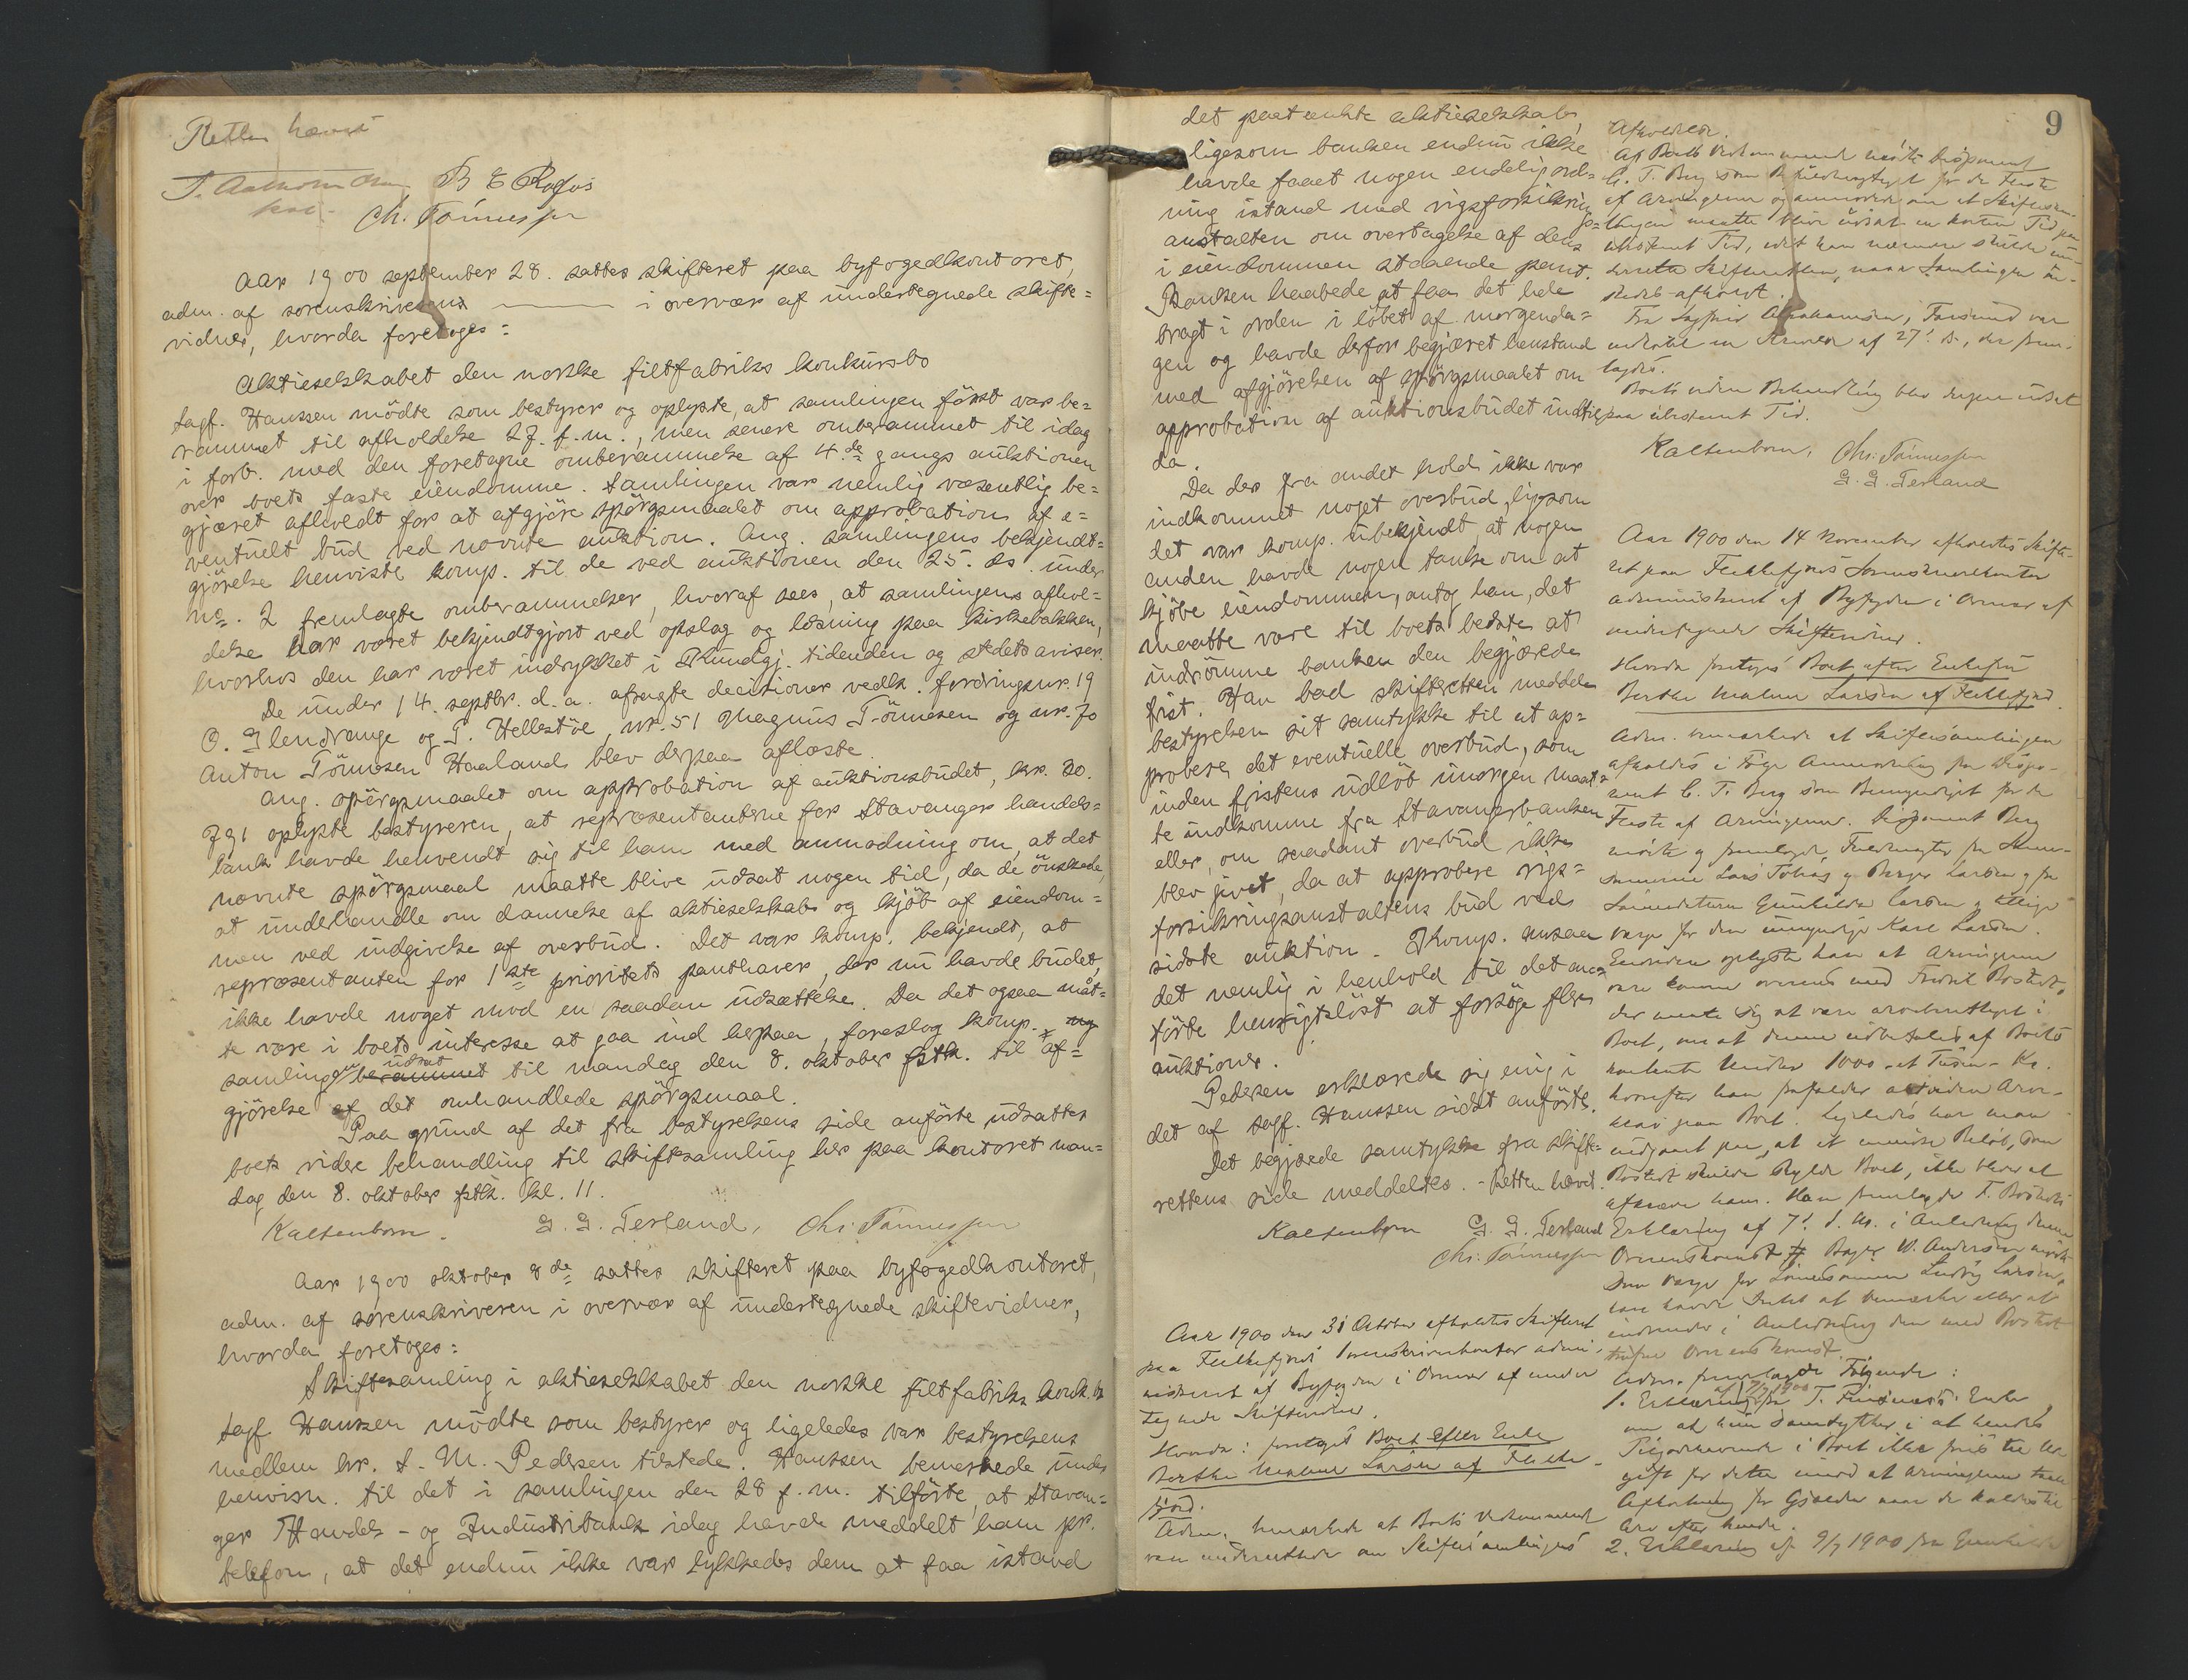 Retten hævet
B E Rafos
Chr. Tönnessen
Aar 1900 september 28. sattes skifteret paa byfogedkontoret,
adm. af sorenskriveren i overvær af undertegnede skifte=
vidner, hvorda foretoges:
Aktieselskabet den norske filtfabriks konkursbo
Sagf. Hanssen mödte som bestyrer og oplyste, at samlingen först var be=
rammet til afholdelse 27. f.m., men senere omberammet til idag
i forb. med den foretagne omberammelse af 4.de gangs auktionen
over boets faste eiendomme. Samlingen var nemlig væsentlig be=
gjæret afholdt for at afgjöre spörgsmaalet om approbation af e=
ventuelt bud ved nævnte auktion. Ang. samlingens bekjendt=
gjörelse henviste komp. til de ved auktionen den 25. ds. under
no. 2 fremlagte omberammelser, hvoraf sees, at samlingens afhol=
delse har været bekjendtgjort ved opslag og læsning paa kirkebakken,
hvorhos den har været indrykket i Kundgj. tidenden og stedets aviser.
De under 14. septbr. d.a. afsagte decisioner vedk. fordringsnr. 19
O. Glendrange og T. Hellestöe, nr. 51 Magnus Tönnesen og nr. 70
Anton Tönnesen Haaland blev derpaa aflæste.
Ang. spörgsmaalet om approbation af auktionsbudet, kr. 20.
791 oplyste bestyreren, at repræsentanterne for Stavanger handels=
bank havde henvendt sig til ham med anmodning om, at det
nævnte spörgsmaal maatte blive udsat nogen tid, da de önskede,
at underhandle om dannelse af aktieselskab og kjöb af eiendom=
men ved indgivelse af overbud. Det var komp. bekjendt, at
repræsentanten for 1ste prioritets panthaver, der nu havde budet,
ikke havde noget mod en saadan udsættelse. Da det ogsaa maat=
te være i boets interesse at gaa ind herpaa, foreslog komp.
samlingen udsat til mandag den 8. oktober förstk. til af=
gjörelse af det omhandlede spörgsmaal.
Paa grund af det fra bestyrelsens side anförte udsattes
boets videre behandling til skiftesamling her paa kontoret man=
dag den 8. oktober fstk. kl. 11.
Kaltenborn. G. G. Tesland, Chr. Tönnessen
Aar 1900 oktober 8de sattes skifteret paa byfogedkontoret,
adm. af sorenskriveren i overvær af undertegnede skiftevidner,
hvorda foretoges:
Skiftesamling i aktieselskabet den norske filtfabriks konk.bo
Sagf. Hanssen mödte som bestyrer og ligeledes var bestyrelsens
medlem hr. S. M. Pedersen tilstede. Hanssen bemerkede under
henvisn. til det i samlingen den 28 f.m. tilförte, at Stavan=
ger Handels- og Industribank idag havde meddelt ham pr.
telefon, at det endnu ikke var lykkedes dem at faa istand
det paatænkte aktieselskab,
ligesom banken endnu ikke
havde faaet nogen endelig ord=
ning istand med rigsforsikrings=
anstalten om overtagelse af dens
i eiendommen staaende pant.
Banken haabede at faa det hele
bragt i orden i löbet af morgenda=
gen og havde derfor begjæret henstand
med afgjörelsen af spörgsmaalet om
approbation af auktionsbudet indtil
da.
Da der fra andet hold ikke var
indkommet noget overbud, ligesom
det var komp. ubekjendt, at nogen
anden havde nogen tanke om at
kjöbe eiendommen, antog han, det
maatte være til boets bedste at
indrömme banken den begjærede
frist. Han bad skifteretten meddele
bestyrelsen sit samtykke til at ap=
probere det eventuelle overbud, som
inden fristens udlöb imorgen maat=
te indkomme fra Stavangerbanken
eller, om saadant overbud ikke
blev givet, da at approbere rigs=
forsikringsanstaltens bud ved
sidste auktion. Komp. ansaa
det nemlig i henhold til det an=
förte hensigtslöst at forsöge flere
auktioner.
Pedersen erklærede sig enig i
det af sagf. Hanssen sidst anförte.
Det begjærede samtykke fra skifte=
rettens side meddeltes. - Retten hævet.
Kaltenborn G. G. Tesland
Chr. Tönnessen
Aar 1900 den 31 Oktober afholdtes Skifteret
paa Flekkefjords Sorenskriverkontor admi-
nistreret af Byfogden i Overvær af under
tegnede Skiftevidner.
Hvorda: foretoges Boet efter Enke
Berthe Malene Larsen af Flekke-
fjord.
Adm. bemærkede at Boets Vedkommende
var underrettede om Skiftesamlingens
9
Afholdelse.
Af Boets Vedkommende mödte
C. T. Berg som Befuldmægtiget for de fleste
af Arvingerne og anmodede om at Skiftesam-
lingen maatte blive udsat en kortere Tid paa
ubestemt Tid, idet han nærmere skulde un-
derrette Skifteretten, naar Samlingen
afholdt.
Fra Sagförer Abrahamsen, Farsund var
indlöbet en Skrivelse af 27. ds., der frem-
lagdes.
Boets videre Behandling blev derpaa udsat
paa ubestemt Tid.
Kaltenborn, Chr. Tönnessen
G. G. Tesland
Aar 1900 den 14 November afholdtes Skifte-
ret paa Flekkefjords Sorenskriverkontor
administreret af Byfogden i Overvær af
undertegnede Skiftevidner.
Hvorda foretoges Boet efter Enkefru
Berthe Malene Larsen af Flekkefjord.
Adm. bemærkede at Skiftesamlingen
afholdes i Fölge Anmodning fra
C. T. Berg som Bemyndiget for de
Fleste af Arvingerne. Berg
mödte og fremlagde Fuldmagter fra
Lars Tobias og Berger Larsen og fra
Gunhilda Larsen
Værge for den umyndige Kare Larsen.
oplyste han at Arvingerne
vare komne overens med Fredrik Bostedt,
der mente sig at være arveberettiget i
Boet, om at denne udbetales af Boets
kontante Midler 1000 - et Tusen - Kr.
hvorefter han frafalder videre Arve-
krav paa Boet. Ligeledes har man
at et mindre Belöb, som
Bostedt skulde skylde Boet, ikke bliver at
afkræve ham. Han fremlagde F. Bostedts
Erklæring af 7. d. M. i Anledning denne
Overenskomst. W. Andersen mödte
som Værge for Ludvig Larsen,
havde Intet at bemærke eller at
indvende i Anledning den med Bostedt
trufne Overenskomst.
Adm. fremlagde Fölgende:
1. Erklæring af 17/9 1900 fra T. Enke,
om at hun samtykker i at hendes
Tilgodehavende i Boet ikke
gift for dette imod at Arvingerne
Afkortning for Gjælden naar de
Arv efter hende.
2. Erklæring af 9/9 1900 fra Gunhilde